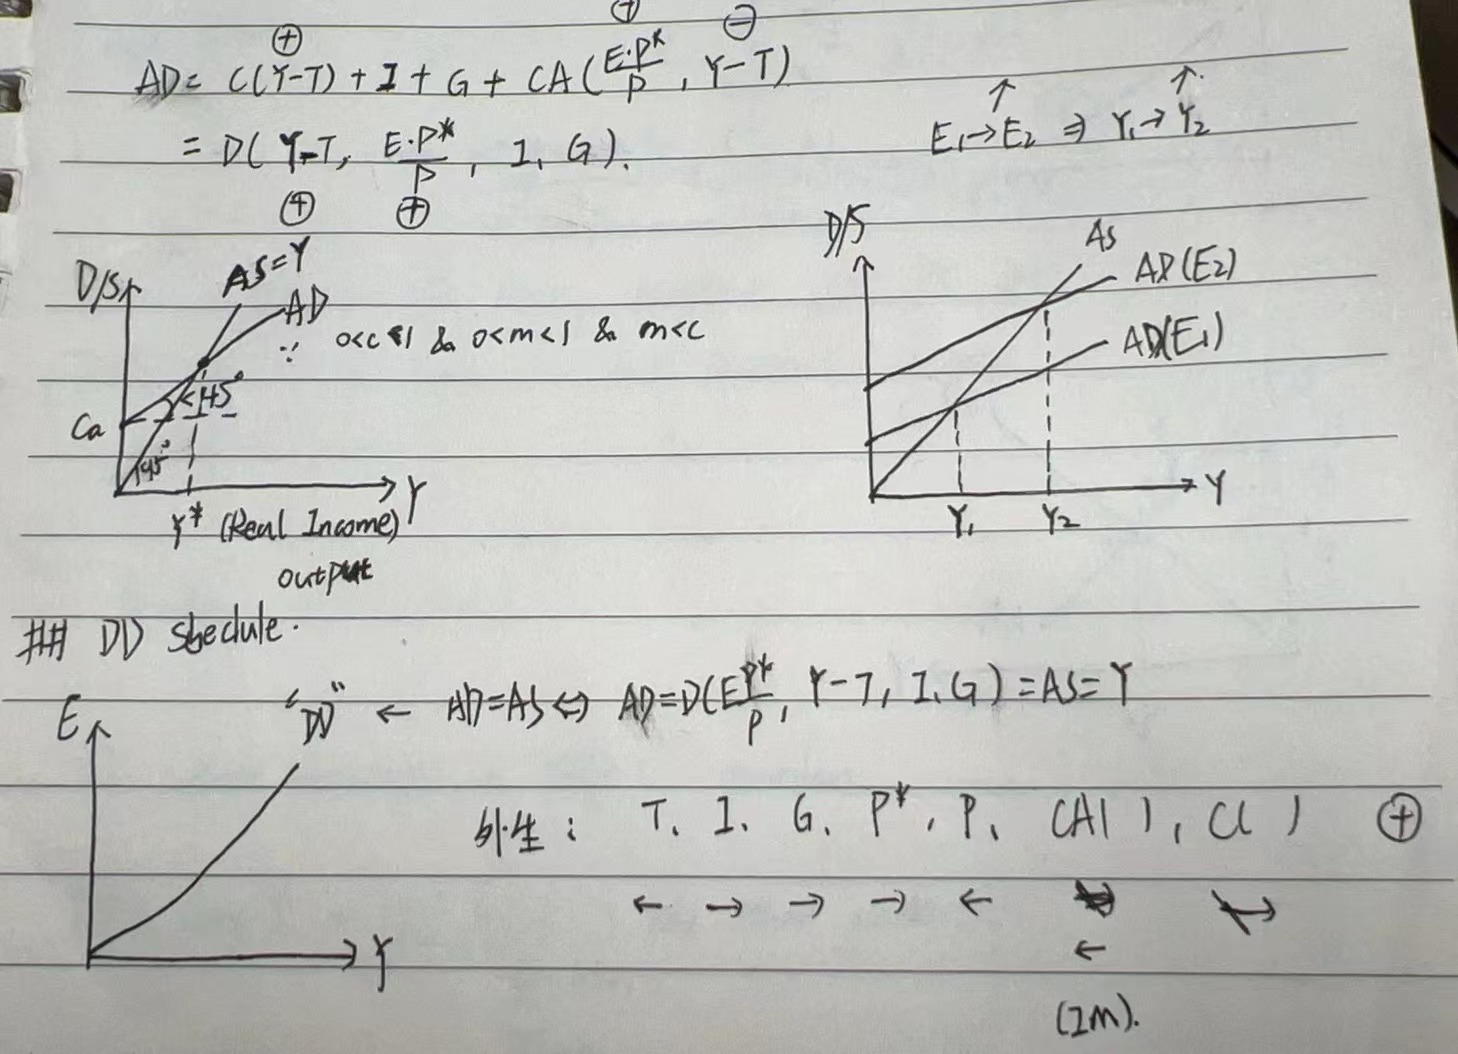 ⊕ ⊕ ⊖
AD = C(Y-T) + I + G + CA(E·P*/P, Y-T)
= D(Y-T, E·P*/P, I, G).
⊕ ⊕
↑ ↑
E₁→E₂ ⇒ Y₁→Y₂
D/S
AS=Y
AD
∵ 0<c<1 & 0<m<1 & m<c
<45°
Ca
45°
Y
Y* (Real Income)
output
D/S
AS
AD(E₂)
AD(E₁)
Y
Y₁ Y₂
## DD shedule.
E
"DD" ← AD=AS ⇔ AD=D(E P*/P, Y-T, I, G) = AS = Y
Y
外生: T、I、G、P*、P、CA( )、C( ) ⊕
← → → → ← →
←
(IM).